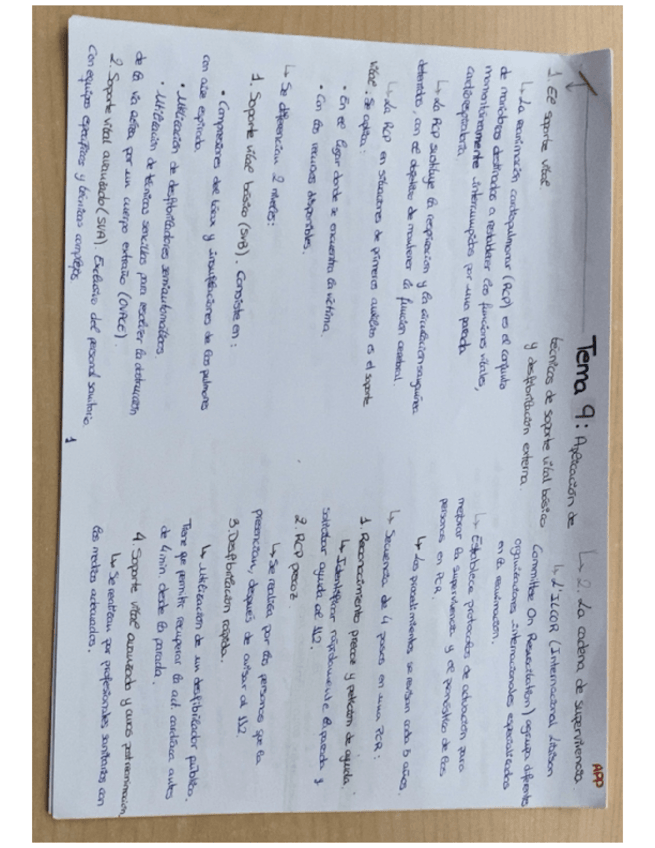 APP
Tema 9: Aplicación de
técnicas de soporte vital básico
y desfibrilación externa.
1. El soporte vital
↳ La reanimación cardiopulmonar (RCP) es el conjunto
de maniobras destinadas a restablecer las funciones vitales,
momentáneamente interrumpidas por una parada
cardiorespiratoria.
↳ La RCP sustituye la respiración y la circulación sanguínea
detenidas, con el objetivo de mantener la función cerebral.
↳ La RCP en situaciones de primeros auxilios es el soporte
vital. Se aplica:
• En el lugar donde se encuentra la víctima.
• Con los recursos disponibles.
↳ Se diferencian 2 niveles:
1. Soporte vital básico (SVB). Consiste en:
• Compresiones del tórax y insuflaciones de los pulmones
con aire espirado.
• Utilización de desfibriladores semiautomáticos.
• Utilización de técnicas sencillas para resolver la obstrucción
de la vía aérea por un cuerpo extraño (OVACE).
2. Soporte vital avanzado (SVA). Exclusivo del personal sanitario
con equipos específicos y técnicas complejas
1
↳ 2. La cadena de supervivencia
↳ L'ILCOR (Internacional Liaison
Committee On Resuscitation) agrupa diferentes
organizaciones internacionales especializadas
en la reanimación.
↳ Establece protocolos de actuación para
mejorar la supervivencia y el pronóstico de las
personas en PCR.
↳ Los procedimientos se revisan cada 5 años.
↳ Secuencia de 4 pasos en una PCR:
1. Reconocimiento precoz y petición de ayuda.
↳ Identificar rápidamente la parada y
solicitar ayuda al 112.
2. RCP precoz.
↳ Se realiza por las personas que la
presencian, después de avisar al 112.
3. Desfibrilación rápida.
↳ Utilización de un desfibrilador público.
Tiene que permitir recuperar la act. cardíaca antes
de 4 min. desde la parada.
4. Soporte vital avanzado y curas postreanimación
↳ Se realizan por profesionales sanitarios con
los medios adecuados.